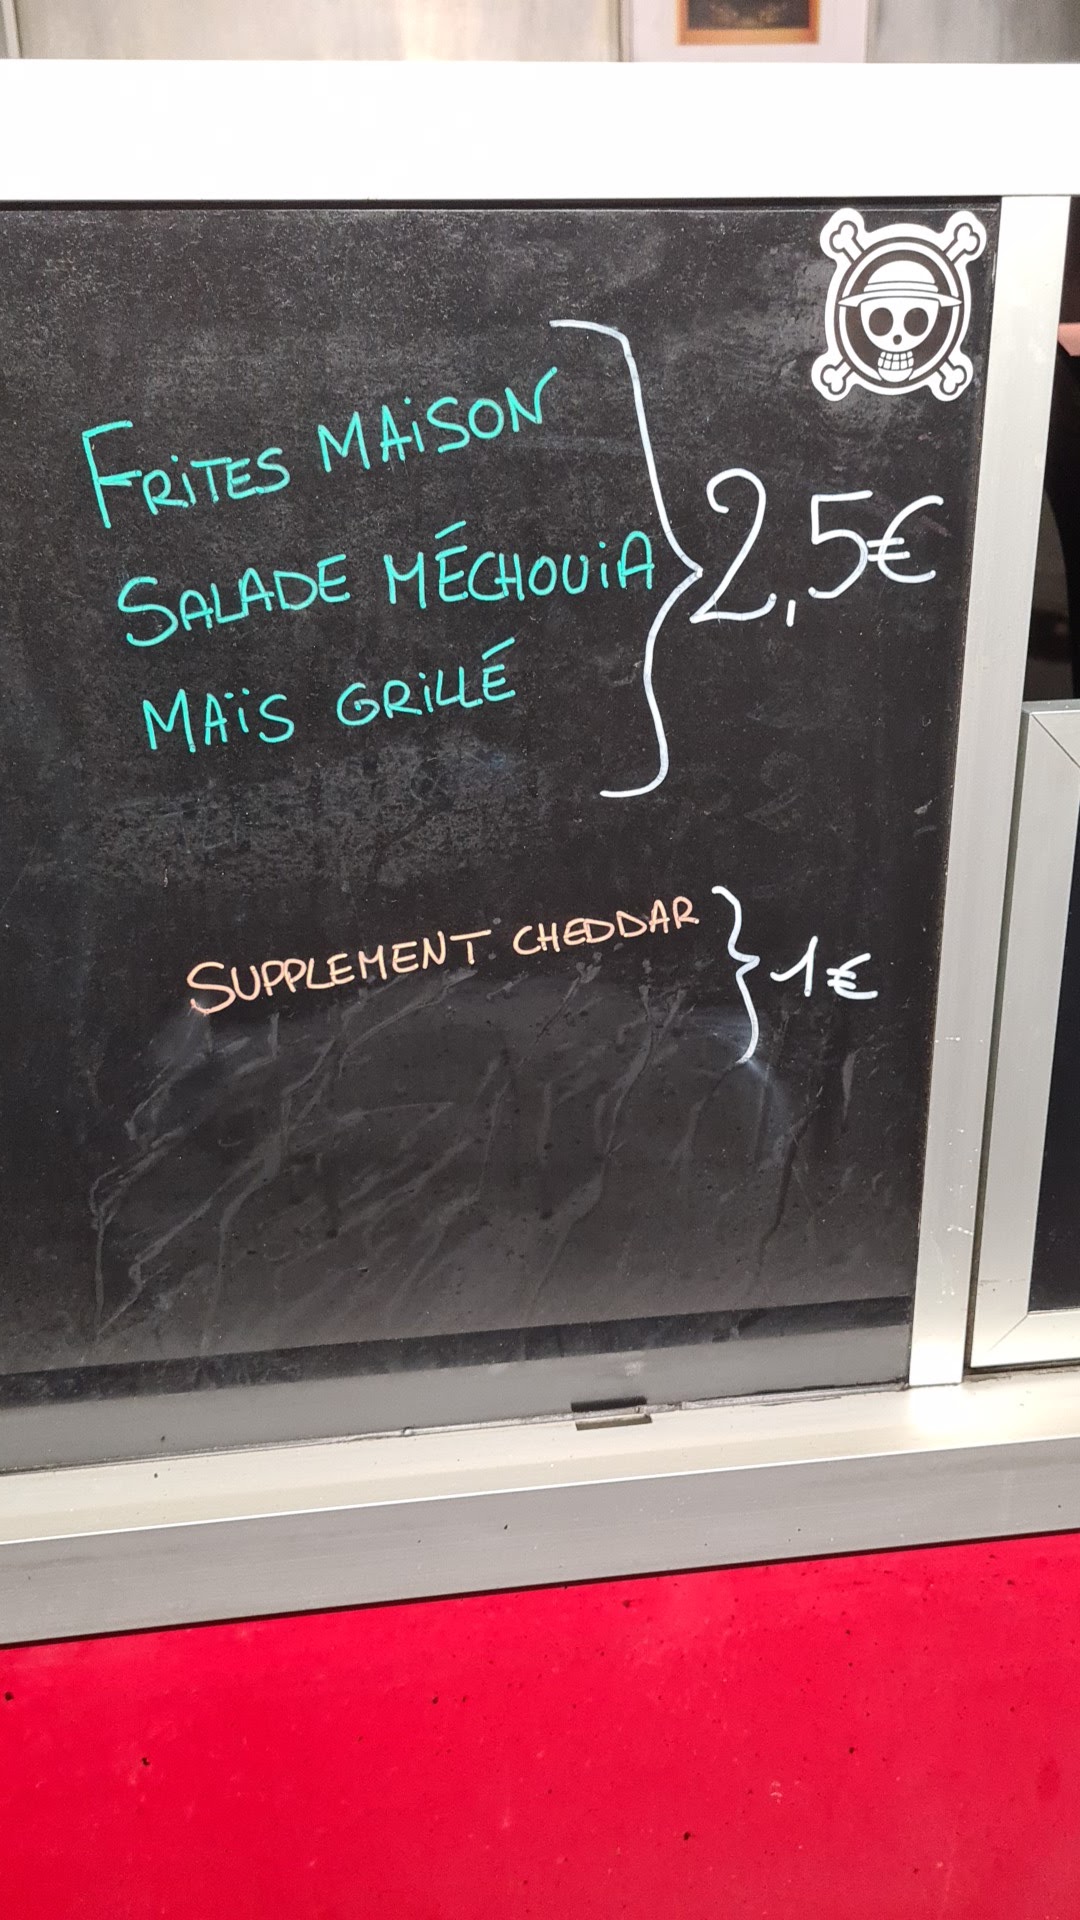 FRITES MAISON
SALADE MÉCHOUIA
MAÏS GRILLÉ
2,5€
SUPPLEMENT CHEDDAR
1€